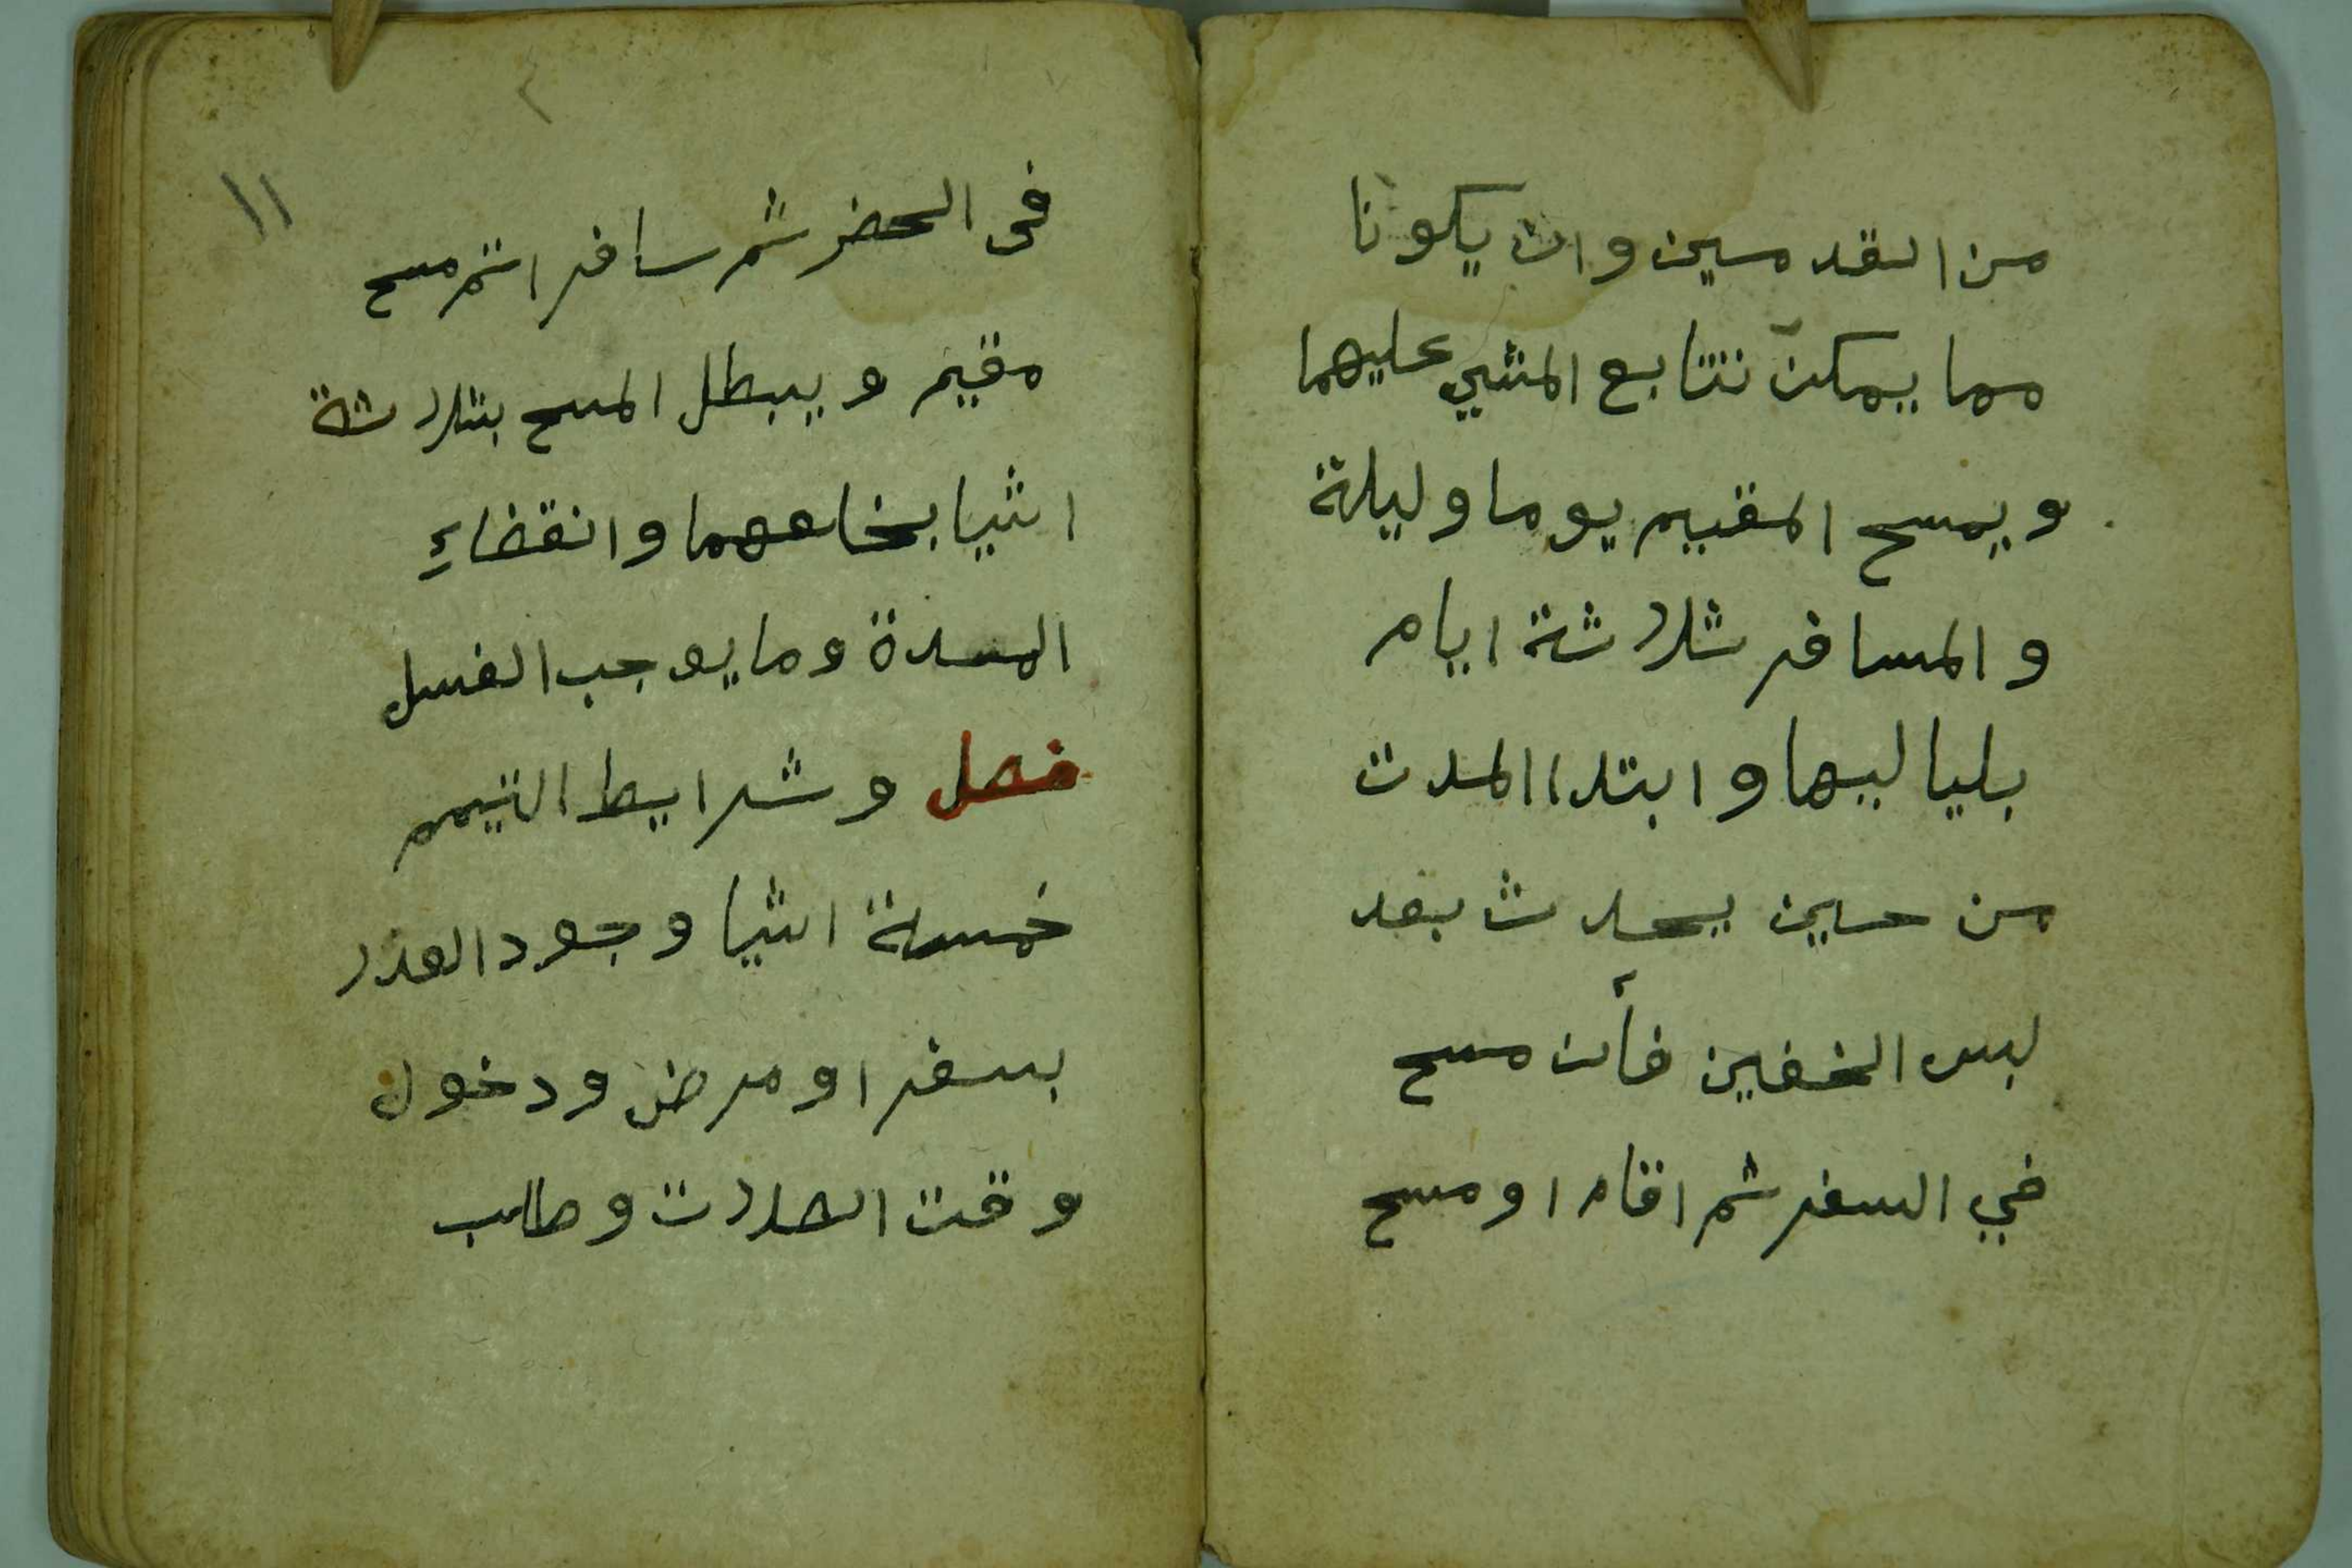 من القدمين وان يكونا
مما يمكن تتابع المشي عليهما
ويمسح المقيم يوما وليلة
والمسافر ثلاثة ايام
بلياليها وابتداا المدت
من حين يحدث بعد
لبس الخفين فأن مسح
في السفر ثم اقام او مسح
١١
فى الحضر ثم سافر اتم مسح
مقيم ويبطل المسح بثلاثة
اشيا بخلعهما وانقضاءِ
المدة وما يوجب الغسل
فصل وشرايط التيمم
خمسة اشيا وجود العذر
بسفر او مرض ودخول
وقت الصلات وطلب